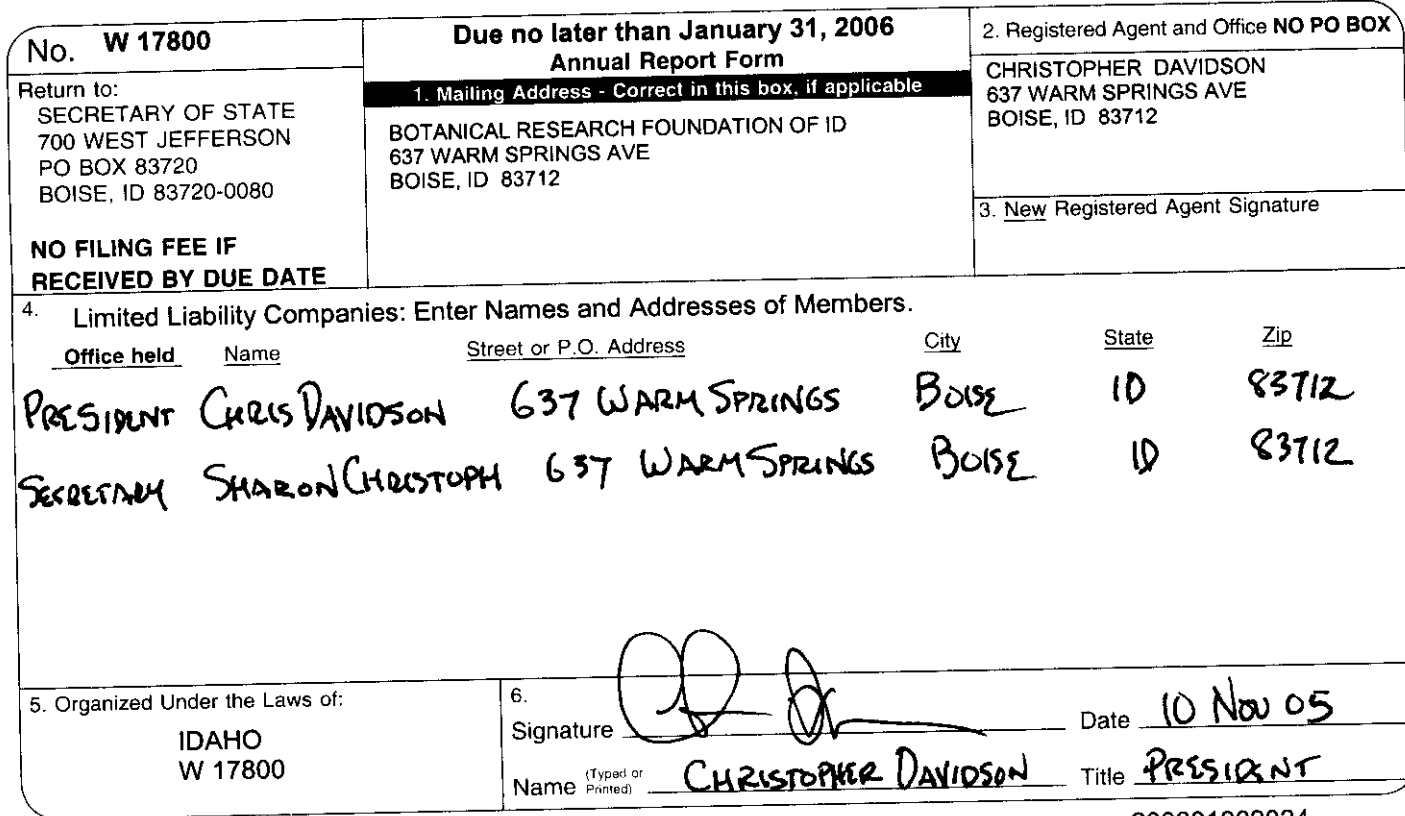 No. W 17800
Return to:
SECRETARY OF STATE
700 WEST JEFFERSON
PO BOX 83720
BOISE, ID 83720-0080
NO FILING FEE IF
RECEIVED BY DUE DATE
Due no later than January 31, 2006
Annual Report Form
1. Mailing Address - Correct in this box, if applicable
BOTANICAL RESEARCH FOUNDATION OF ID
637 WARM SPRINGS AVE
BOISE, ID 83712
2. Registered Agent and Office NO PO BOX
CHRISTOPHER DAVIDSON
637 WARM SPRINGS AVE
BOISE, ID 83712
3. New Registered Agent Signature
4. Limited Liability Companies: Enter Names and Addresses of Members.
Office held Name Street or P.O. Address City State Zip
PRESIDENT CHRIS DAVIDSON 637 WARM SPRINGS BOISE ID 83712
SECRETARY SHARON CHRISTOPH 637 WARM SPRINGS BOISE ID 83712
5. Organized Under the Laws of:
IDAHO
W 17800
6.
Signature Date 10 Nov 05
Name (Typed or Printed) CHRISTOPHER DAVIDSON Title PRESIDENT